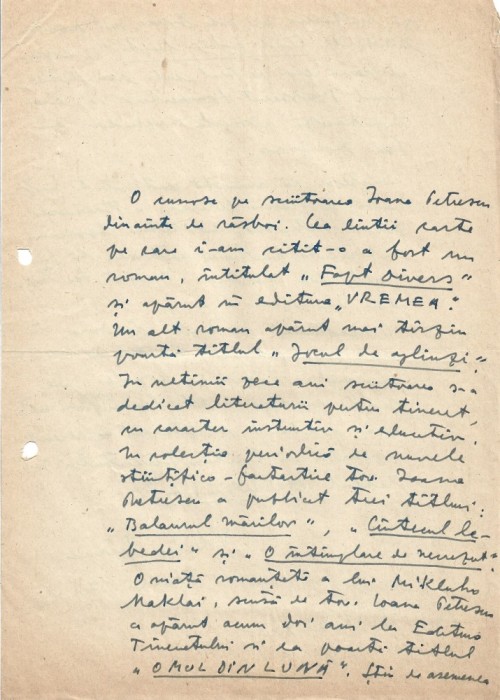 O cunosc pe scriitoarea Ioana Petrescu
dinainte de răsboi. Cea dintîi carte
pe care i-am citit-o a fost un
roman, intitulat „Fapt Divers"
și apărut în editura „VREMEA".
Un alt roman apărut mai tîrziu
poartă titlul „Jocul de oglinzi".
In ultimii zece ani scriitoarea s-a
dedicat literaturii pentru tineret,
cu caracter instructiv și educativ.
In colecția periodică de nuvele
științifico-fantastice tov. Ioana
Petrescu a publicat trei titluri:
„Balaurul mărilor", „Cîntecul le-
bedei" și „O întîmplare de necrezut".
O viață romanțată a lui Mikluho
Maklai, scrisă de tov. Ioana Petrescu
a apărut acum doi ani la Editura
Tineretului și ea poartă titlul
„OMUL DIN LUNĂ". Știu de asemenea